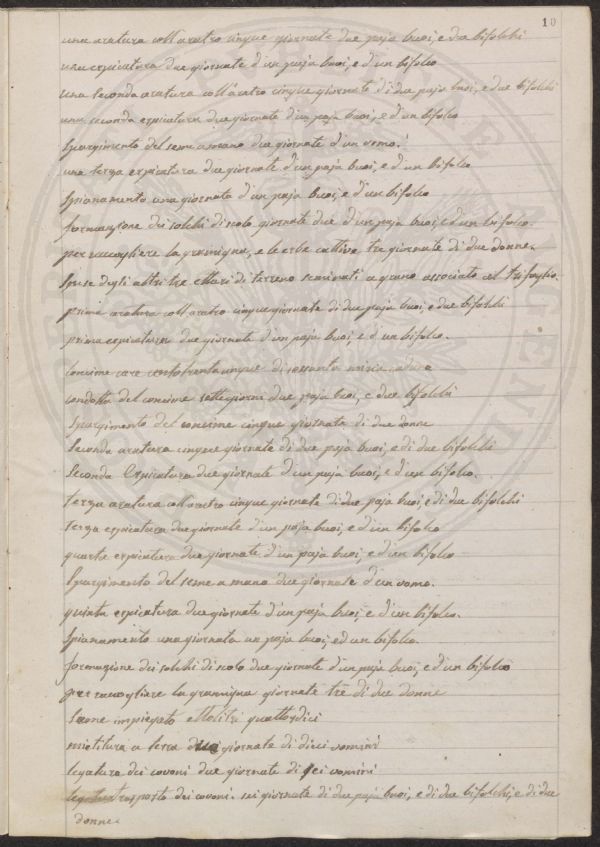 10
una aratura coll'aratro cinque giornate due paja buoi, e due bifolchi
una erpicatura due giornate d'un pajà buoi, e d'un bifolco
una seconda aratura coll'aratro cinque giornate di due paja buoi, e due bifolchi
una seconda erpicatura due giornate d'un pajà buoi, e d'un bifolco
Spargimento del seme a mano due giornate d'un uomo.
una terza erpicatura due giornate d'un pajà buoi, e d'un bifolco
Spianamento una giornata d'un pajà buoi, e d'un bifolco
formazione dei solchi di scolo giornate due d'un pajà buoi, e d'un bifolco.
per raccogliere la gramigna, e le erbe cattive tre giornate di due donne.
Spese degli altri tre ettari di terreno seminati a grano associato col trifoglio.
prima aratura coll'aratro cinque giornate di due pajà buoi, e due bifolchi
prima erpicatura due giornate d'un pajà buoi, e d'un bifolco.
Concime care centotrentacinque di sessanta
condotta del concime sette giorni due pajà buoi, e due bifolchi
Spargimento del concime cinque giornate di due donne
Seconda aratura cinque giornate di due pajà buoi, e di due bifolchi
Seconda Erpicatura due giornate d'un pajà buoi, e d'un bifolco.
terza aratura coll'aratro cinque giornate di due paja buoi, e di due bifolchi
terza erpicatura due giornate d'un pajà buoi, e d'un bifolco
quarta erpicatura due giornate d'un pajà buoi, e d'un bifolco
Spargimento del seme a mano due giornate d'un uomo.
quinta erpicatura due giornate d'un pajà buoi, e d'un bifolco.
Spianamento una giornata un pajà buoi, ed un bifolco.
formazione dei solchi di scolo due giornate d'un pajà buoi, e d'un bifolco
per raccogliere la gramigna giornate tre di due donne
Seme impiegato ettolitri quattordici
mietitura a terra due giornate di dieci uomini
legatura dei covoni due giornate di sei uomini
trasporto dei covoni. sei giornate di due pajà buoi, e di due bifolchi, e di due
donne.